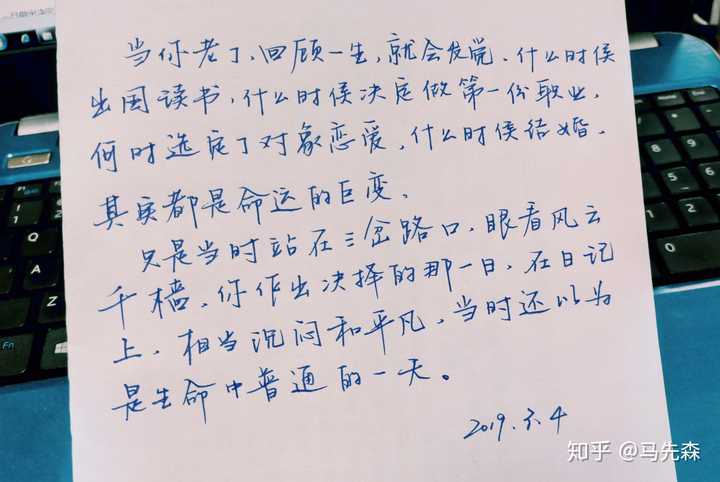 当你老了，回顾一生，就会发觉，什么时侯
出国读书，什么时侯决定做第一份职业，
何时选定了对象恋爱，什么时侯结婚，
其实都是命运的巨变，
只是当时站在三岔路口，眼看风云
千樯，你作出决择的那一日，在日记
上，相当沉闷和平凡，当时还以为
是生命中普通的一天。
知乎 @马先森